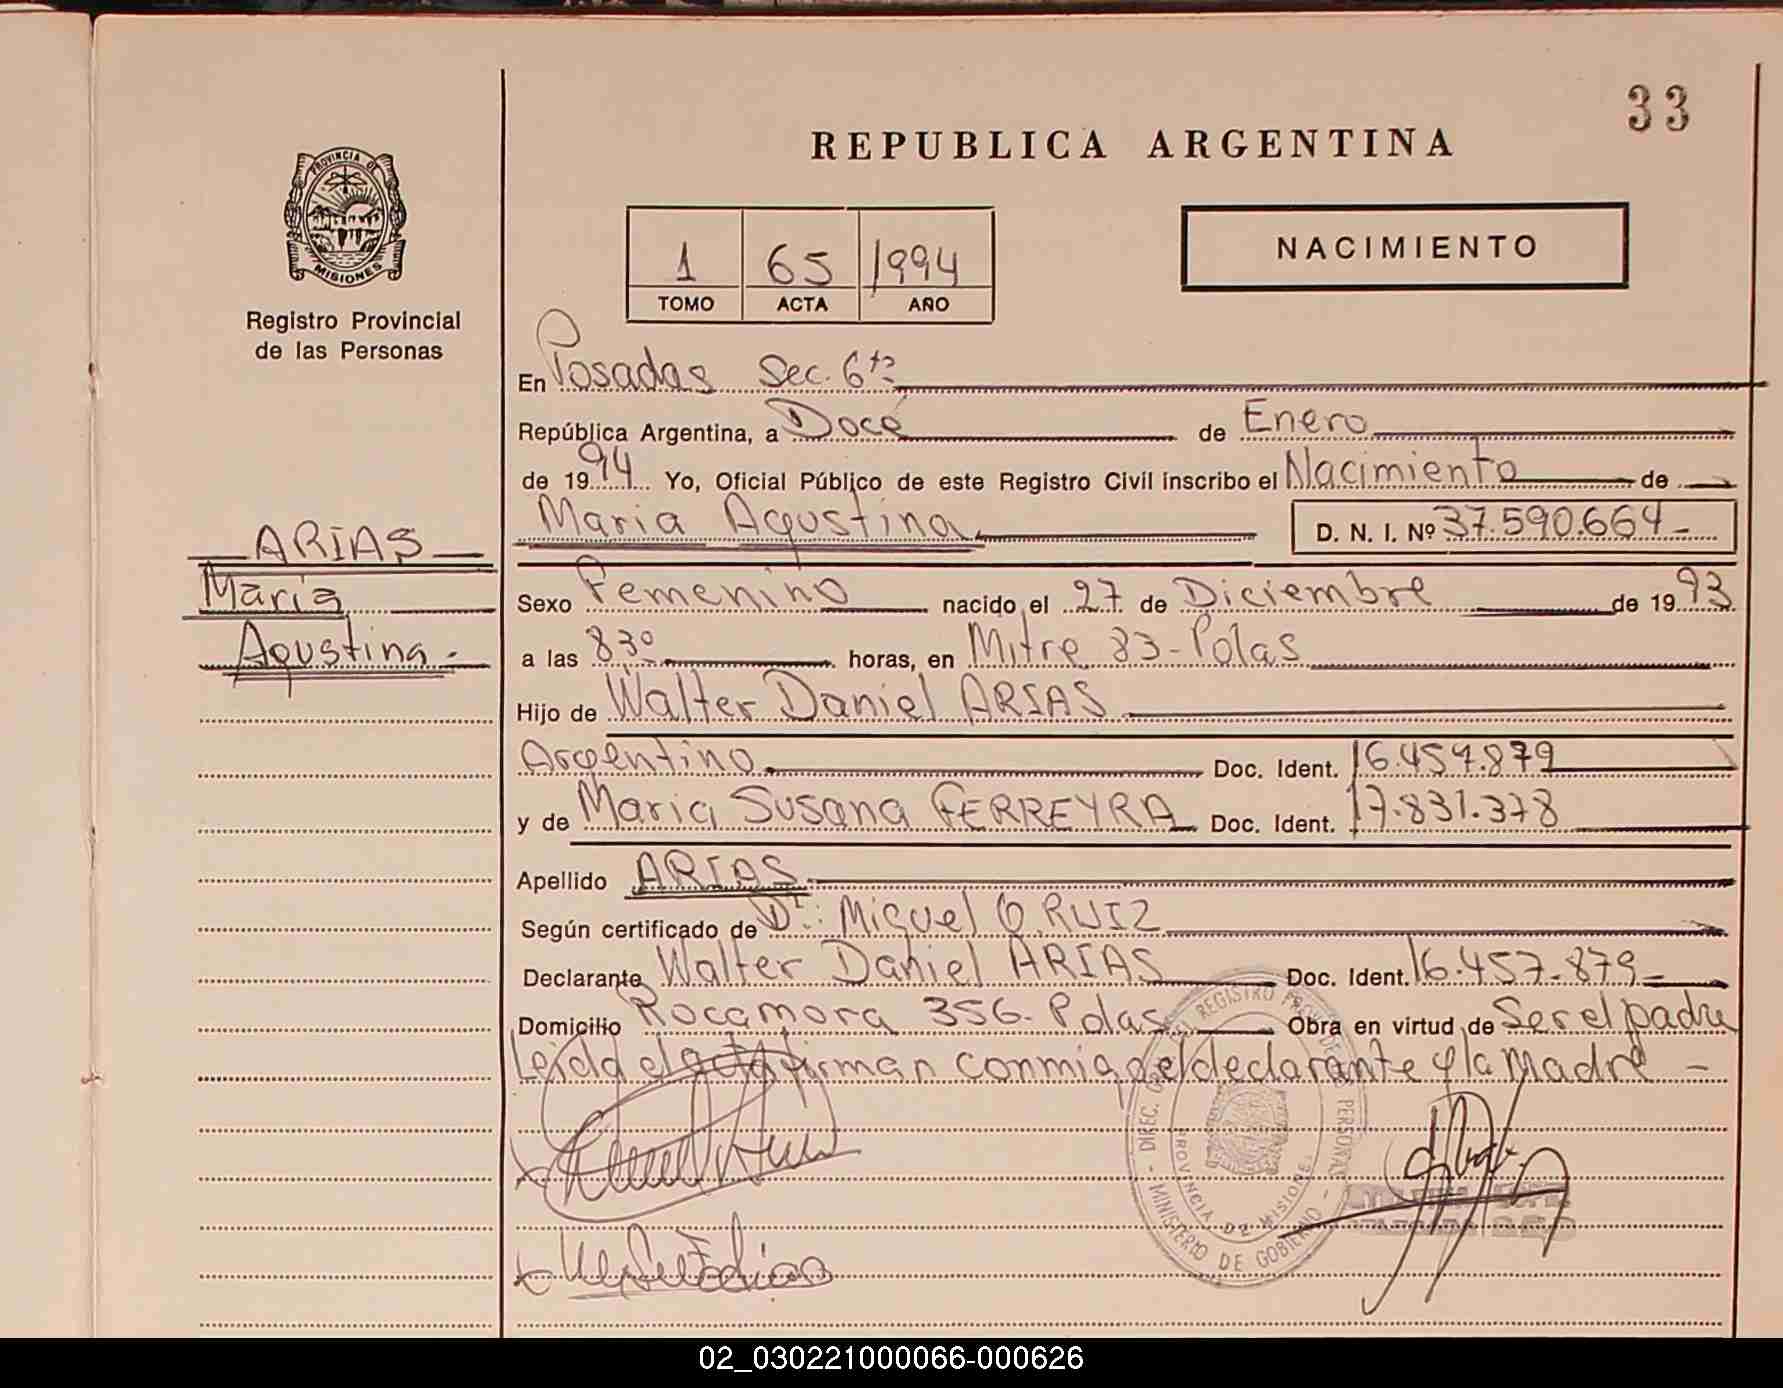 33
REPUBLICA ARGENTINA
PROVINCIA DE
MISIONES
Registro Provincial
de las Personas
1 65 1994
TOMO ACTA AÑO
NACIMIENTO
En Posadas Sec. 6ta
República Argentina, a Doce de Enero
de 1994 Yo, Oficial Público de este Registro Civil inscribo el Nacimiento de
Maria Agustina D. N. I. Nº 37.590.664-
ARIAS
Maria
Agustina.-
Sexo Femenino nacido el 27 de Diciembre de 1993
a las 830 horas, en Mitre 83-Pdas
Hijo de Walter Daniel ARIAS
Argentino Doc. Ident. 16.457.879
y de Maria Susana FERREYRA Doc. Ident. 17.831.378
Apellido ARIAS
Según certificado de Dr. Miguel O. RUIZ
Declarante Walter Daniel ARIAS Doc. Ident. 16.457.879
Domicilio Rocamora 356- Pdas Obra en virtud de Ser el padre
Leida el acta firman conmigo el declarante y la Madre -
DEL REGISTRO PERSONAS - MINISTERIO DE GOBIERNO - DIREC.
PROVINCIA DE MISIONES
02_030221000066-000626